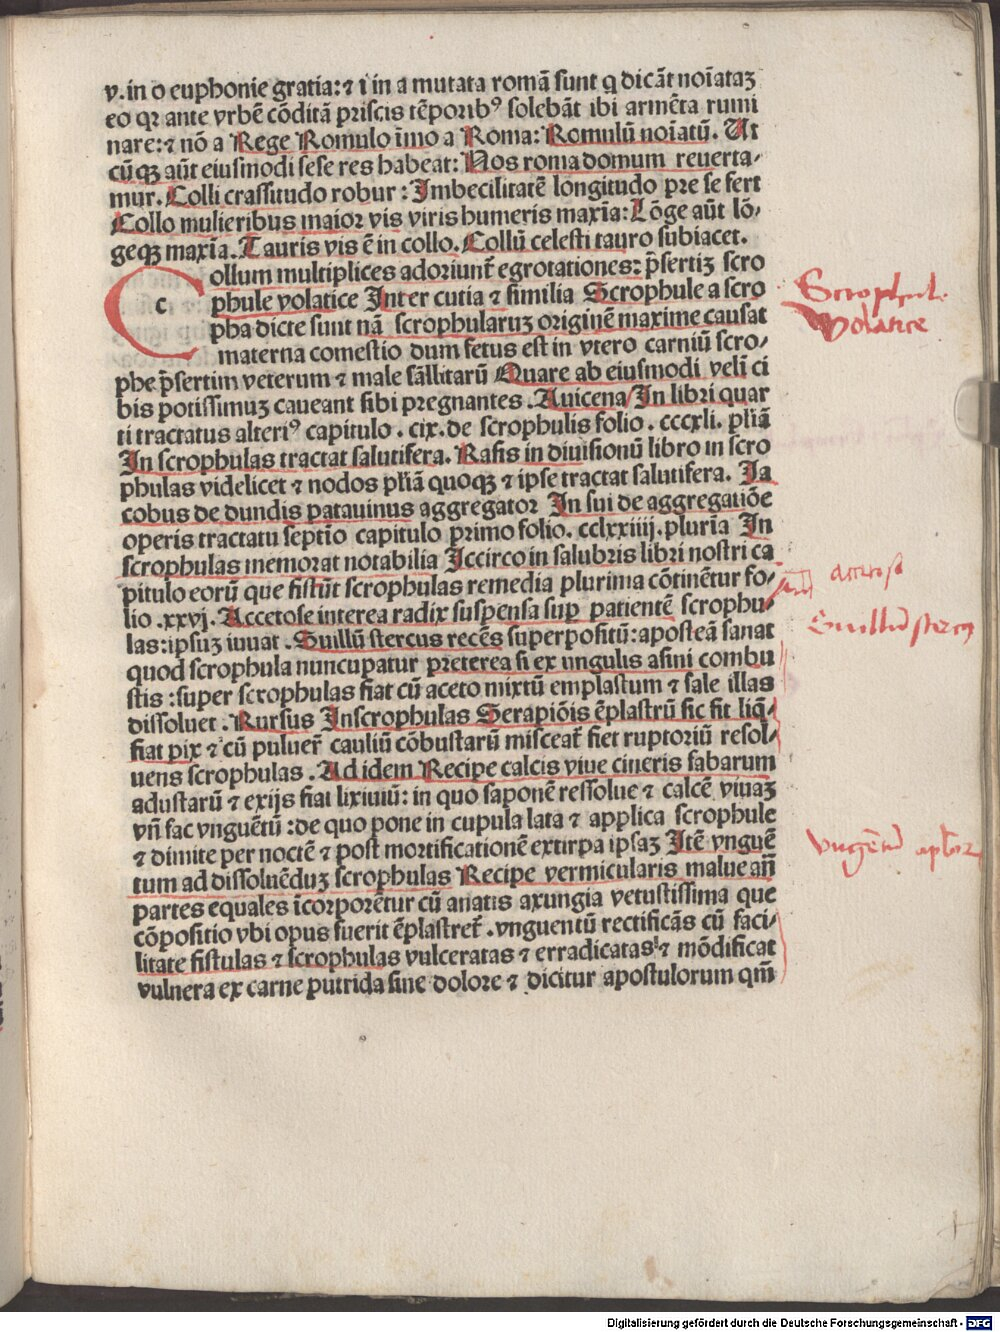 v. in o euphonie gratia: ⁊ i in a mutata romā sunt q̄ dicāt noīataꝫ
eo qꝛ ante vrbē cōditā priscis tēporibꝰ solebāt ibi armēta rumi
nare: ⁊ nō a Rege Romulo īmo a Roma: Romulū noīatū. Ut
cūqꝫ aūt eiusmodi sese res habeat: Nos roma domum reuerta⸗
mur. Colli crassitudo robur: Imbecilitatē longitudo pre se fert
Collo mulieribus maior vis viris humeris maxīa: Lōge aūt lō⸗
geqꝫ maxīa. Tauris vis ē in collo. Collū celesti tauro subiacet.
Collum multiplices adoriunt̄ egrotationes: p̄sertiꝫ scro
phule volatice Inter cutia ⁊ similia Scrophule a scro
pha dicte sunt nā scrophularuꝫ originē maxime causat
materna comestio dum fetus est in vtero carniū scro⸗
phe p̄sertim veterum ⁊ male sāllitarū Quare ab eiusmodi velī ci
bis potissimuꝫ caueant sibi pregnantes. Auicena In libri quar
ti tractatus alteriꝰ capitulo. cix. de scrophulis folio. cccxli. pl̄iā
In scrophulas tractat salutifera. Rasis in diuisionū libro in scro
phulas videlicet ⁊ nodos pl̄iā quoqꝫ ⁊ ipse tractat salutifera. Ja
cobus de dundis patauinus aggregator In sui de aggregatiōe
operis tractatu septīo capitulo primo folio. cclxxiiij. plurīa In
scrophulas memorat notabilia Iccirco in salubris libri nostri ca
pitulo eorū que fistūt scrophulas remedia plurima cōtinētur fo⸗
lio. xxvj. Accetose interea radix suspensa sup̄ patientē scrophu⸗
las: ipsuꝫ iuuat. Suillū stercus recēs superpositū: aposteā sanat
quod scrophula nuncupatur preterea si ex vngulis asini combu
stis: super scrophulas fiat cū aceto mixtū emplastum ⁊ sale illas
dissoluet. Rursus Inscrophulas Serapiōis ēplastrū sic fit liq̄⸗
fiat pix ⁊ cū puluer̄ cauliū cōbustarū misceat̄ fiet ruptoriū resol⸗
uens scrophulas. Ad idem Recipe calcis viue cineris fabarum
adustarū ⁊ exijs fiat lixiuiū: in quo saponē ressolue ⁊ calcē viuaꝫ
vn̄ fac vnguētū: de quo pone in cupula lata ⁊ applica scrophule
⁊ dimite per noctē ⁊ post mortificationē extirpa ipsaꝫ Itē vnguē
tum ad dissoluēduꝫ scrophulas Recipe vermicularis malue an̄
partes equales īcorporētur cū anatis axungia vetustissima que
cōpositio vbi opus fuerit ēplastret̄. vnguentū rectificās cū faci⸗
litate fistulas ⁊ scrophulas vulceratas ⁊ erradicatas ⁊ mōdificat
vulnera ex carne putrida sine dolore ⁊ dicitur apostulorum qm̄
Scrophul.
Volatice
Suillū stercus
vngētū aplor
Digitalisierung gefördert durch die Deutsche Forschungsgemeinschaft - DFG